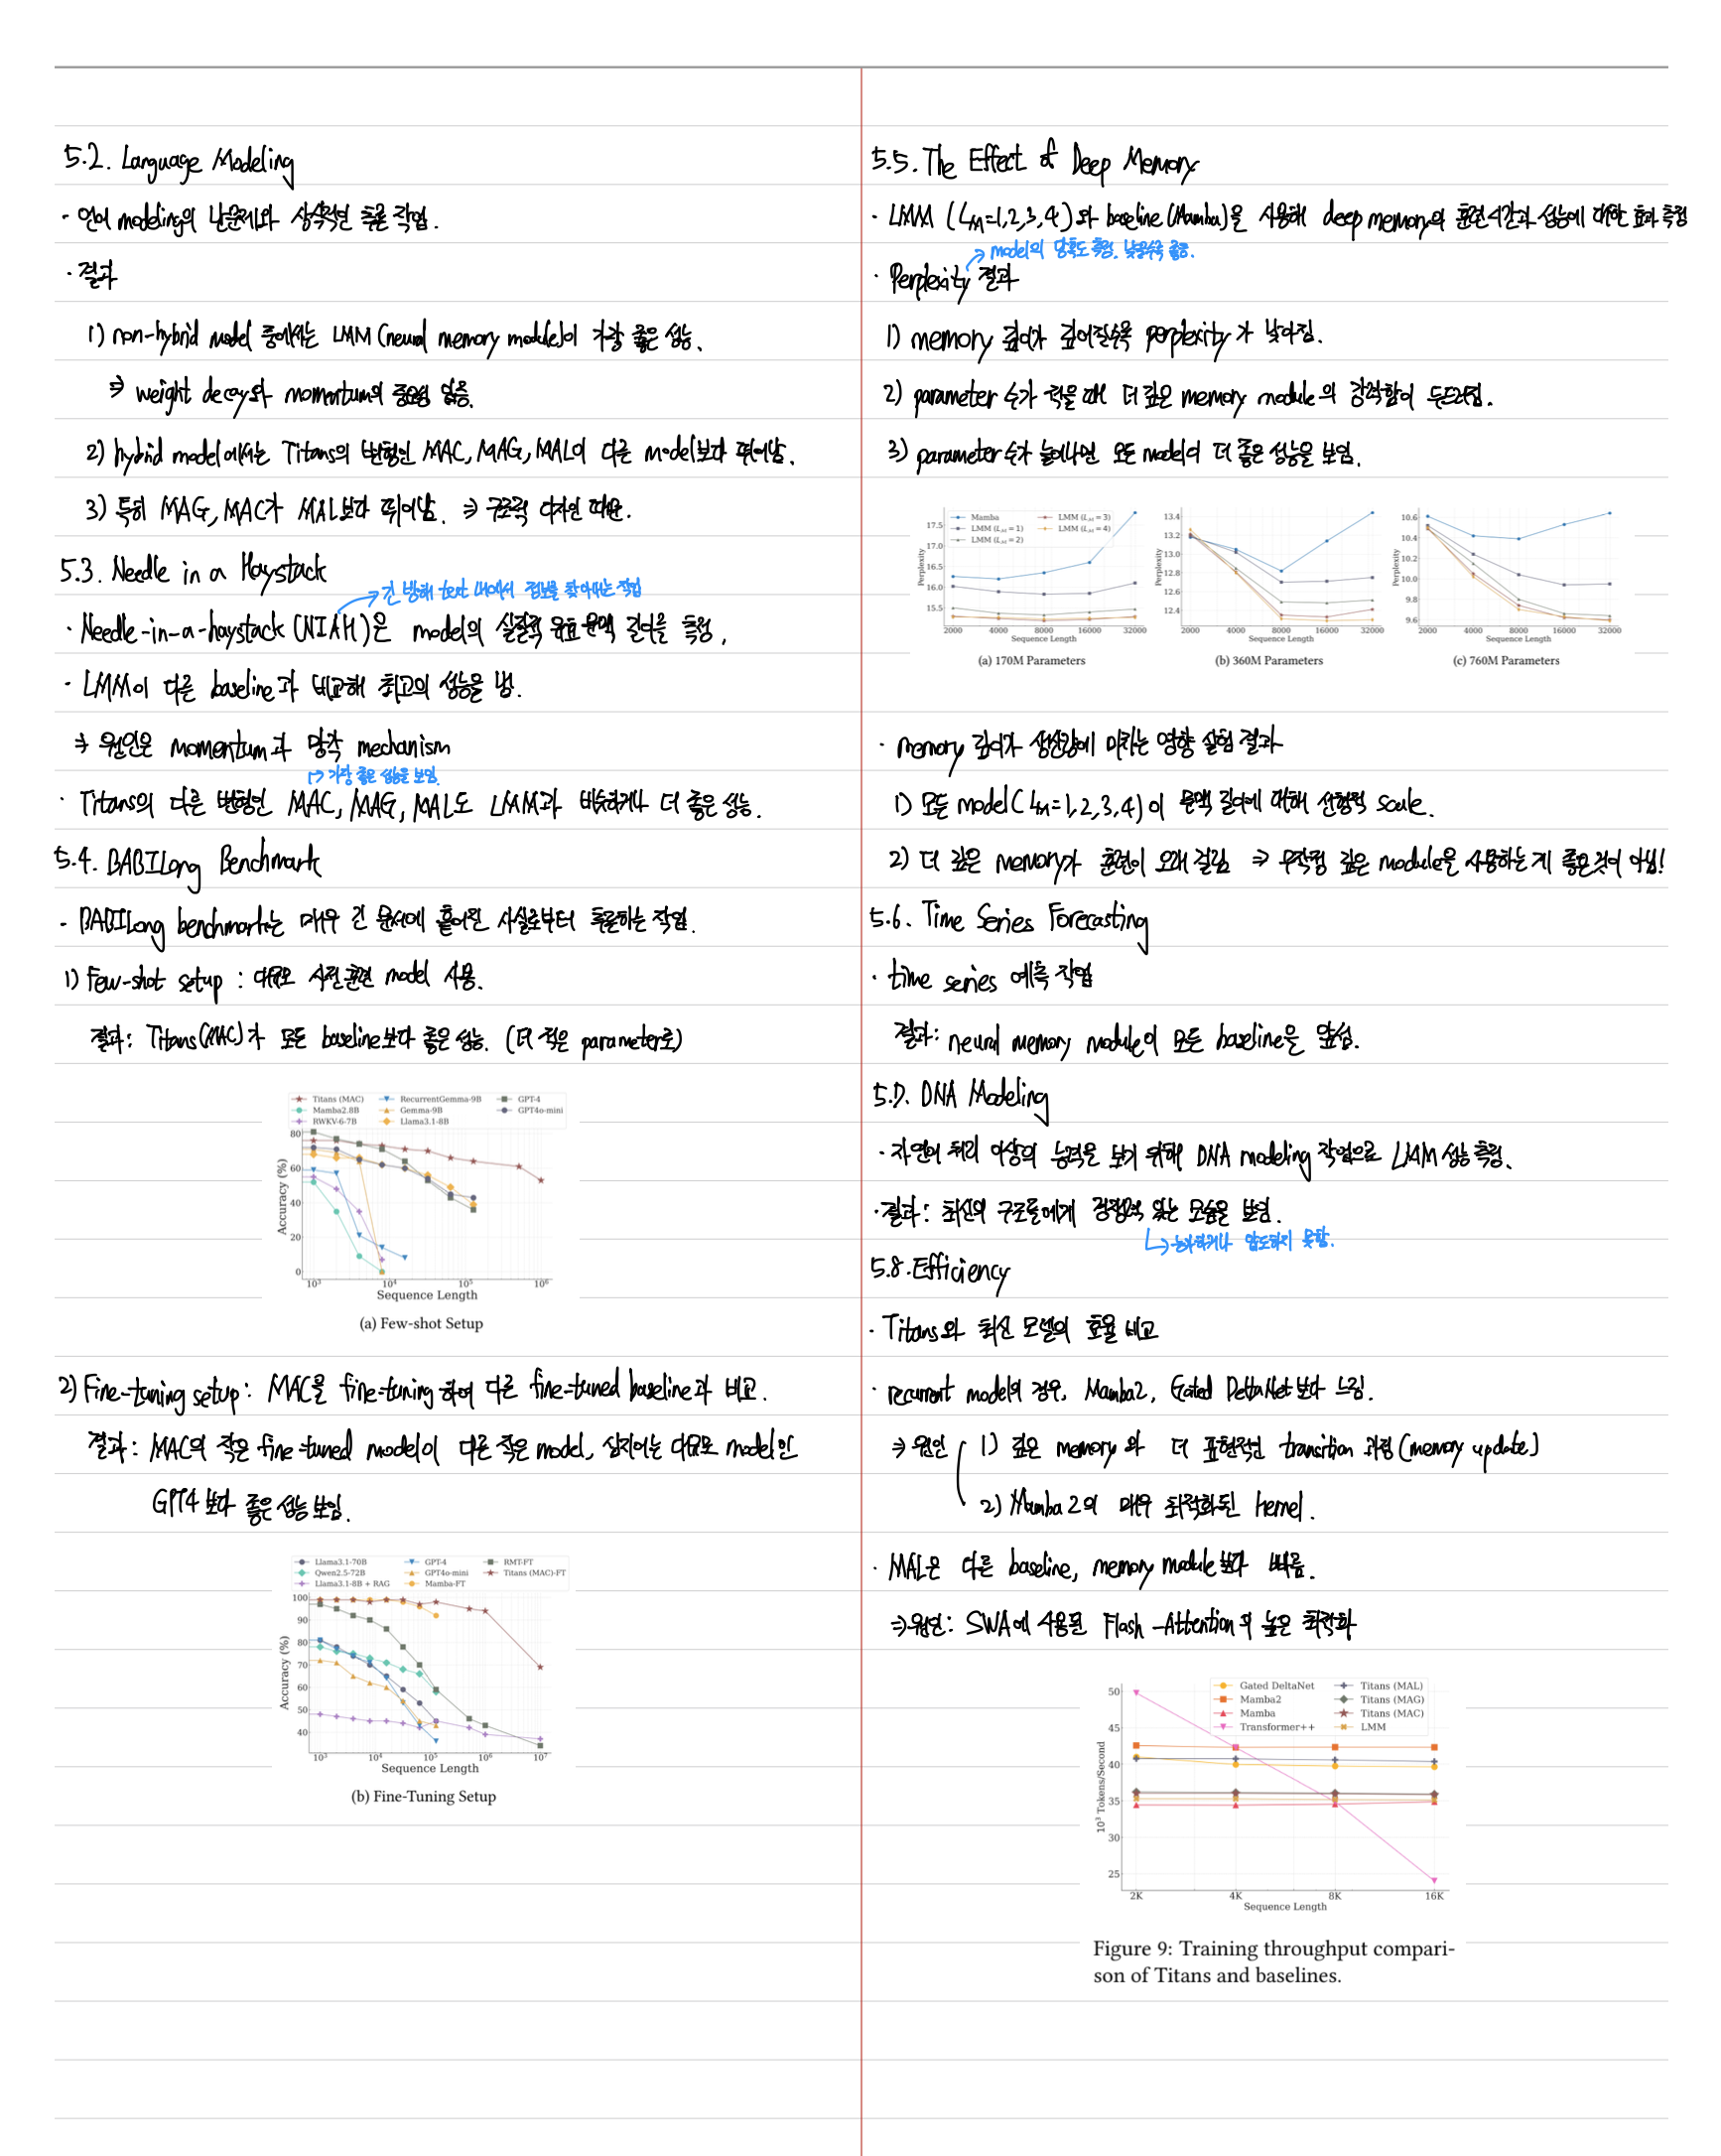 5.2. Language Modeling
· 언어 modeling의 난문제와 상식적인 추론 작업.
· 결과
1) non-hybrid model 중에서는 LMM (neural memory module)이 가장 좋은 성능.
⇒ weight decay와 momentum의 중요성 있음.
2) hybrid model에서는 Titans의 변형인 MAC, MAG, MAL이 다른 model보다 뛰어남.
3) 특히 MAG, MAC가 MAL보다 뛰어남. ⇒ 구조적 디자인 때문.
5.3. Needle in a Haystack
→ 긴 방해 text 내에서 정보를 찾아내는 작업
· Needle-in-a-haystack (NIAH)은 model의 실질적 유효 문맥 길이를 측정.
· LMM이 다른 baseline과 비교해 최고의 성능을 냄.
⇒ 원인은 momentum과 망각 mechanism
↱ 가장 좋은 성능을 보임.
· Titans의 다른 변형인 MAC, MAG, MAL도 LMM과 비슷하거나 더 좋은 성능.
5.4. BABILong Benchmark
- BABILong benchmark는 매우 긴 문서에 흩어진 사실로부터 추론하는 작업.
1) Few-shot setup : 대규모 사전훈련 model 사용.
결과: Titans(MAC)가 모든 baseline보다 좋은 성능. (더 적은 parameter로)
Titans (MAC) RecurrentGemma-9B GPT-4
Mamba2.8B Gemma-9B GPT4o-mini
RWKV-6-7B Llama3.1-8B
Accuracy (%)
80
60
40
20
0
10³ 10⁴ 10⁵ 10⁶
Sequence Length
(a) Few-shot Setup
2) Fine-tuning setup : MAC을 fine-tuning 하여 다른 fine-tuned baseline과 비교.
결과: MAC의 작은 fine-tuned model이 다른 작은 model, 심지어는 대규모 model인
GPT4 보다 좋은 성능 보임.
Llama3.1-70B GPT-4 RMT-FT
Qwen2.5-72B GPT4o-mini Titans (MAC)-FT
Llama3.1-8B + RAG Mamba-FT
Accuracy (%)
100
90
80
70
60
50
40
10³ 10⁴ 10⁵ 10⁶ 10⁷
Sequence Length
(b) Fine-Tuning Setup
5.5. The Effect of Deep Memory
· LMM (L_M=1,2,3,4)와 baseline(Mamba)을 사용해 deep memory의 훈련시간과 성능에 대한 효과 측정
→ model의 당혹도 측정. 낮을수록 좋음.
· Perplexity 결과
1) memory 깊이가 깊어질수록 perplexity가 낮아짐.
2) parameter 수가 적을 때 더 깊은 memory module의 강력함이 두드러짐.
3) parameter 수가 늘어나면 모든 model이 더 좋은 성능을 보임.
Mamba LMM (L_M = 3)
LMM (L_M = 1) LMM (L_M = 4)
LMM (L_M = 2)
Perplexity
17.5
17.0
16.5
16.0
15.5
2000 4000 8000 16000 32000
Sequence Length
(a) 170M Parameters
Perplexity
13.4
13.2
13.0
12.8
12.6
12.4
2000 4000 8000 16000 32000
Sequence Length
(b) 360M Parameters
Perplexity
10.6
10.4
10.2
10.0
9.8
9.6
2000 4000 8000 16000 32000
Sequence Length
(c) 760M Parameters
· memory 깊이가 생산량에 미치는 영향 실험 결과
1) 모든 model(L_M=1,2,3,4)이 문맥 길이에 대해 선형적 scale.
2) 더 깊은 memory가 훈련이 오래 걸림 ⇒ 무작정 깊은 module을 사용하는 게 좋은 것이 아님!
5.6. Time Series Forecasting
· time series 예측 작업
결과: neural memory module이 모든 baseline을 앞섬.
5.7. DNA Modeling
· 자연어 처리 이상의 능력을 보기 위해 DNA modeling 작업으로 LMM 성능 측정.
· 결과: 최신의 구조들에게 경쟁력 있는 모습을 보임.
↳ 능가하거나 압도하지 못함.
5.8. Efficiency
· Titans와 최신 모델의 효율 비교
· recurrent model의 경우, Mamba2, Gated DeltaNet 보다 느림.
⇒ 원인 1) 깊은 memory 와 더 표현적인 transition 과정 (memory update)
2) Mamba 2의 매우 최적화된 kernel.
· MAL은 다른 baseline, memory module 보다 빠름.
⇒ 원인: SWA에 사용된 Flash-Attention의 높은 최적화
Gated DeltaNet Titans (MAL)
Mamba2 Titans (MAG)
Mamba Titans (MAC)
Transformer++ LMM
10³ Tokens/Second
50
45
40
35
30
25
2K 4K 8K 16K
Sequence Length
Figure 9: Training throughput compari-
son of Titans and baselines.